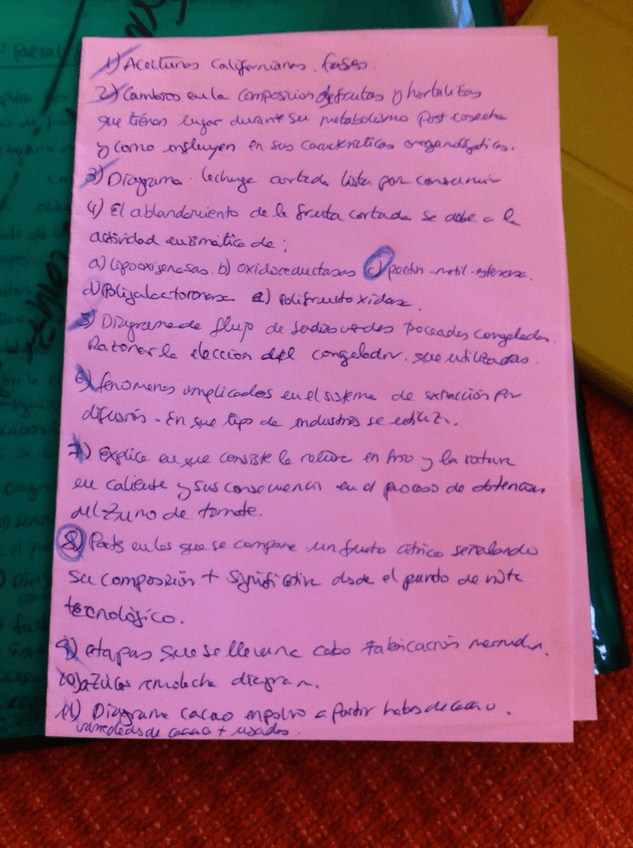 1) Aceitunas californianas. fases.
2) Cambios en la composición de frutas y hortalizas
que tienen lugar durante su metabolismo post cosecha
y como influyen en sus características organolépticas.
3) Diagrama lechuga cortada lista por consumir
4) El ablandamiento de la fruta cortada se debe a la
actividad enzimática de:
a) lipooxigenasas. b) oxidoreductasas c) pectin-metil-esterasa.
d) Poligalacturonasa e) Polifruto oxidasa
5) Diagrama de flujo de judías verdes troceadas congeladas.
Razonar la elección del congelador que utilizadas
6) fenómenos implicados en el sistema de extracción por
difusión - En que tipo de industrias se utiliza.
7) Explica en que consiste la rotura en frío y la rotura
en caliente y sus consecuencias en el proceso de obtención
del zumo de tomate.
8) Parts en los que se compone un fruto cítrico señalando
su composición + significativa desde el punto de vista
tecnológico.
9) etapas que se lleva a cabo fabricación mermelada.
10) azúcar remolacha diagrama.
11) Diagrama cacao en polvo a partir habas de cacao.
variedades de cacao + usados.